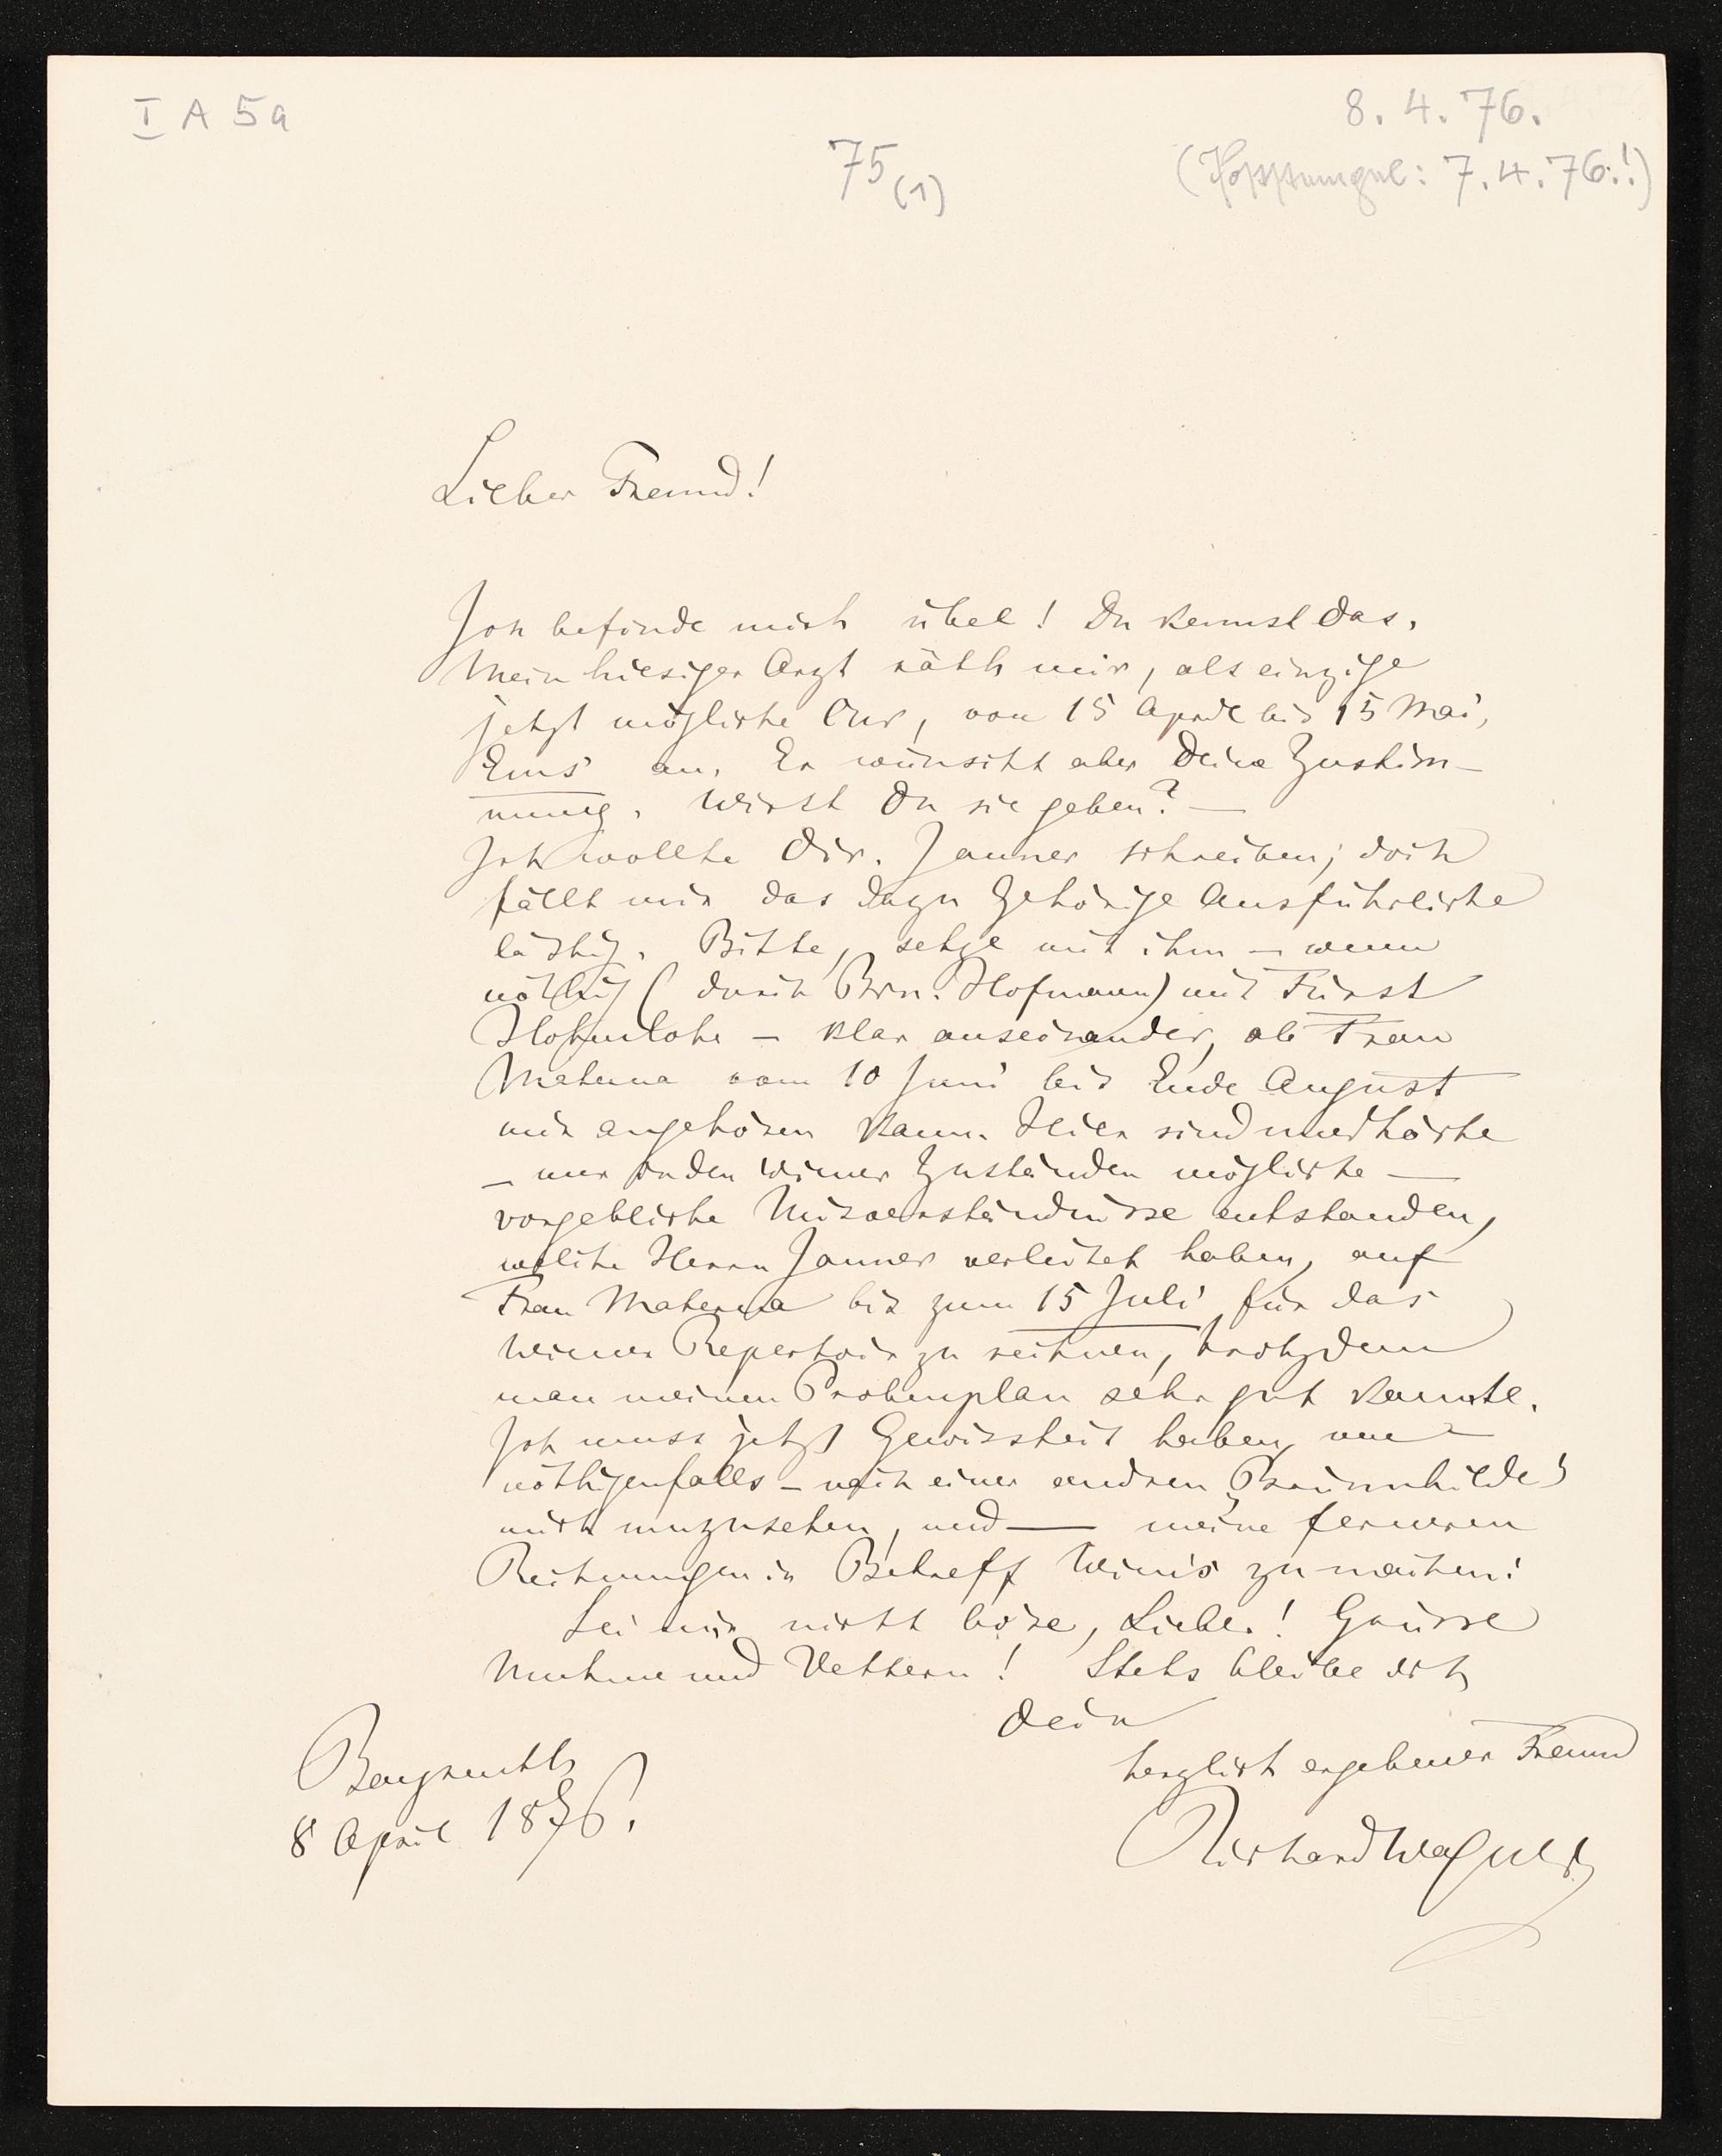 I A 5a
8. 4. 76.
75 (1)
(Poststempel: 7. 4. 76.!)
Lieber Freund!
Ich befinde mich übel! Du kennst das.
Mein hiesiger Arzt räth mir, als einzige
jetzt mögliche Cur, vom 15 April bis 15 Mai,
Ems an. Er wünscht aber Deine Zustim-
mung. Wirst Du sie geben? —
Ich wollte Dir. Jauner schreiben; doch
fällt mir das dazu gehörige Ausführliche
lästig. Bitte, setze mit ihm — wenn
nöthig (durch Brn. Hofmann) mit Fürst
Hohenlohe — klar auseinander, ob Frau
Materna vom 10 Juni bis Ende August
mir angehören kann. Hier sind unerhörte
— nur in den Wiener Zuständen mögliche —
vorgebliche Misverständnisse entstanden,
welche Herrn Jauner verleitet haben, auf
Frau Materna bis zum 15 Juli für das
Wiener Repertoir zu rechnen, trotzdem
man meinen Probenplan sehr gut kannte.
Ich muss jetzt Gewissheit haben, um —
nöthigenfalls — nach einer andren Brünnhilde
mich umzusehen, und — meine ferneren
Rechnungen in Betreff Wien's zu machen!
Sei mir nicht böse, Lieber! Grüsse
Muhme und Vettern! Stets bleibe ich
Dein
herzlich ergebener Freund
Richard Wagner
Bayreuth
8 April 1876.